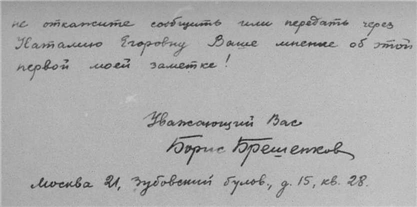 не откажите сообщить или передать через
Наталию Егоровну Ваше мнение об этой
первой моей заметке!
Уважающий Вас
Борис Брешенков
Москва 21, Зубовский бульв., д. 15, кв. 28.